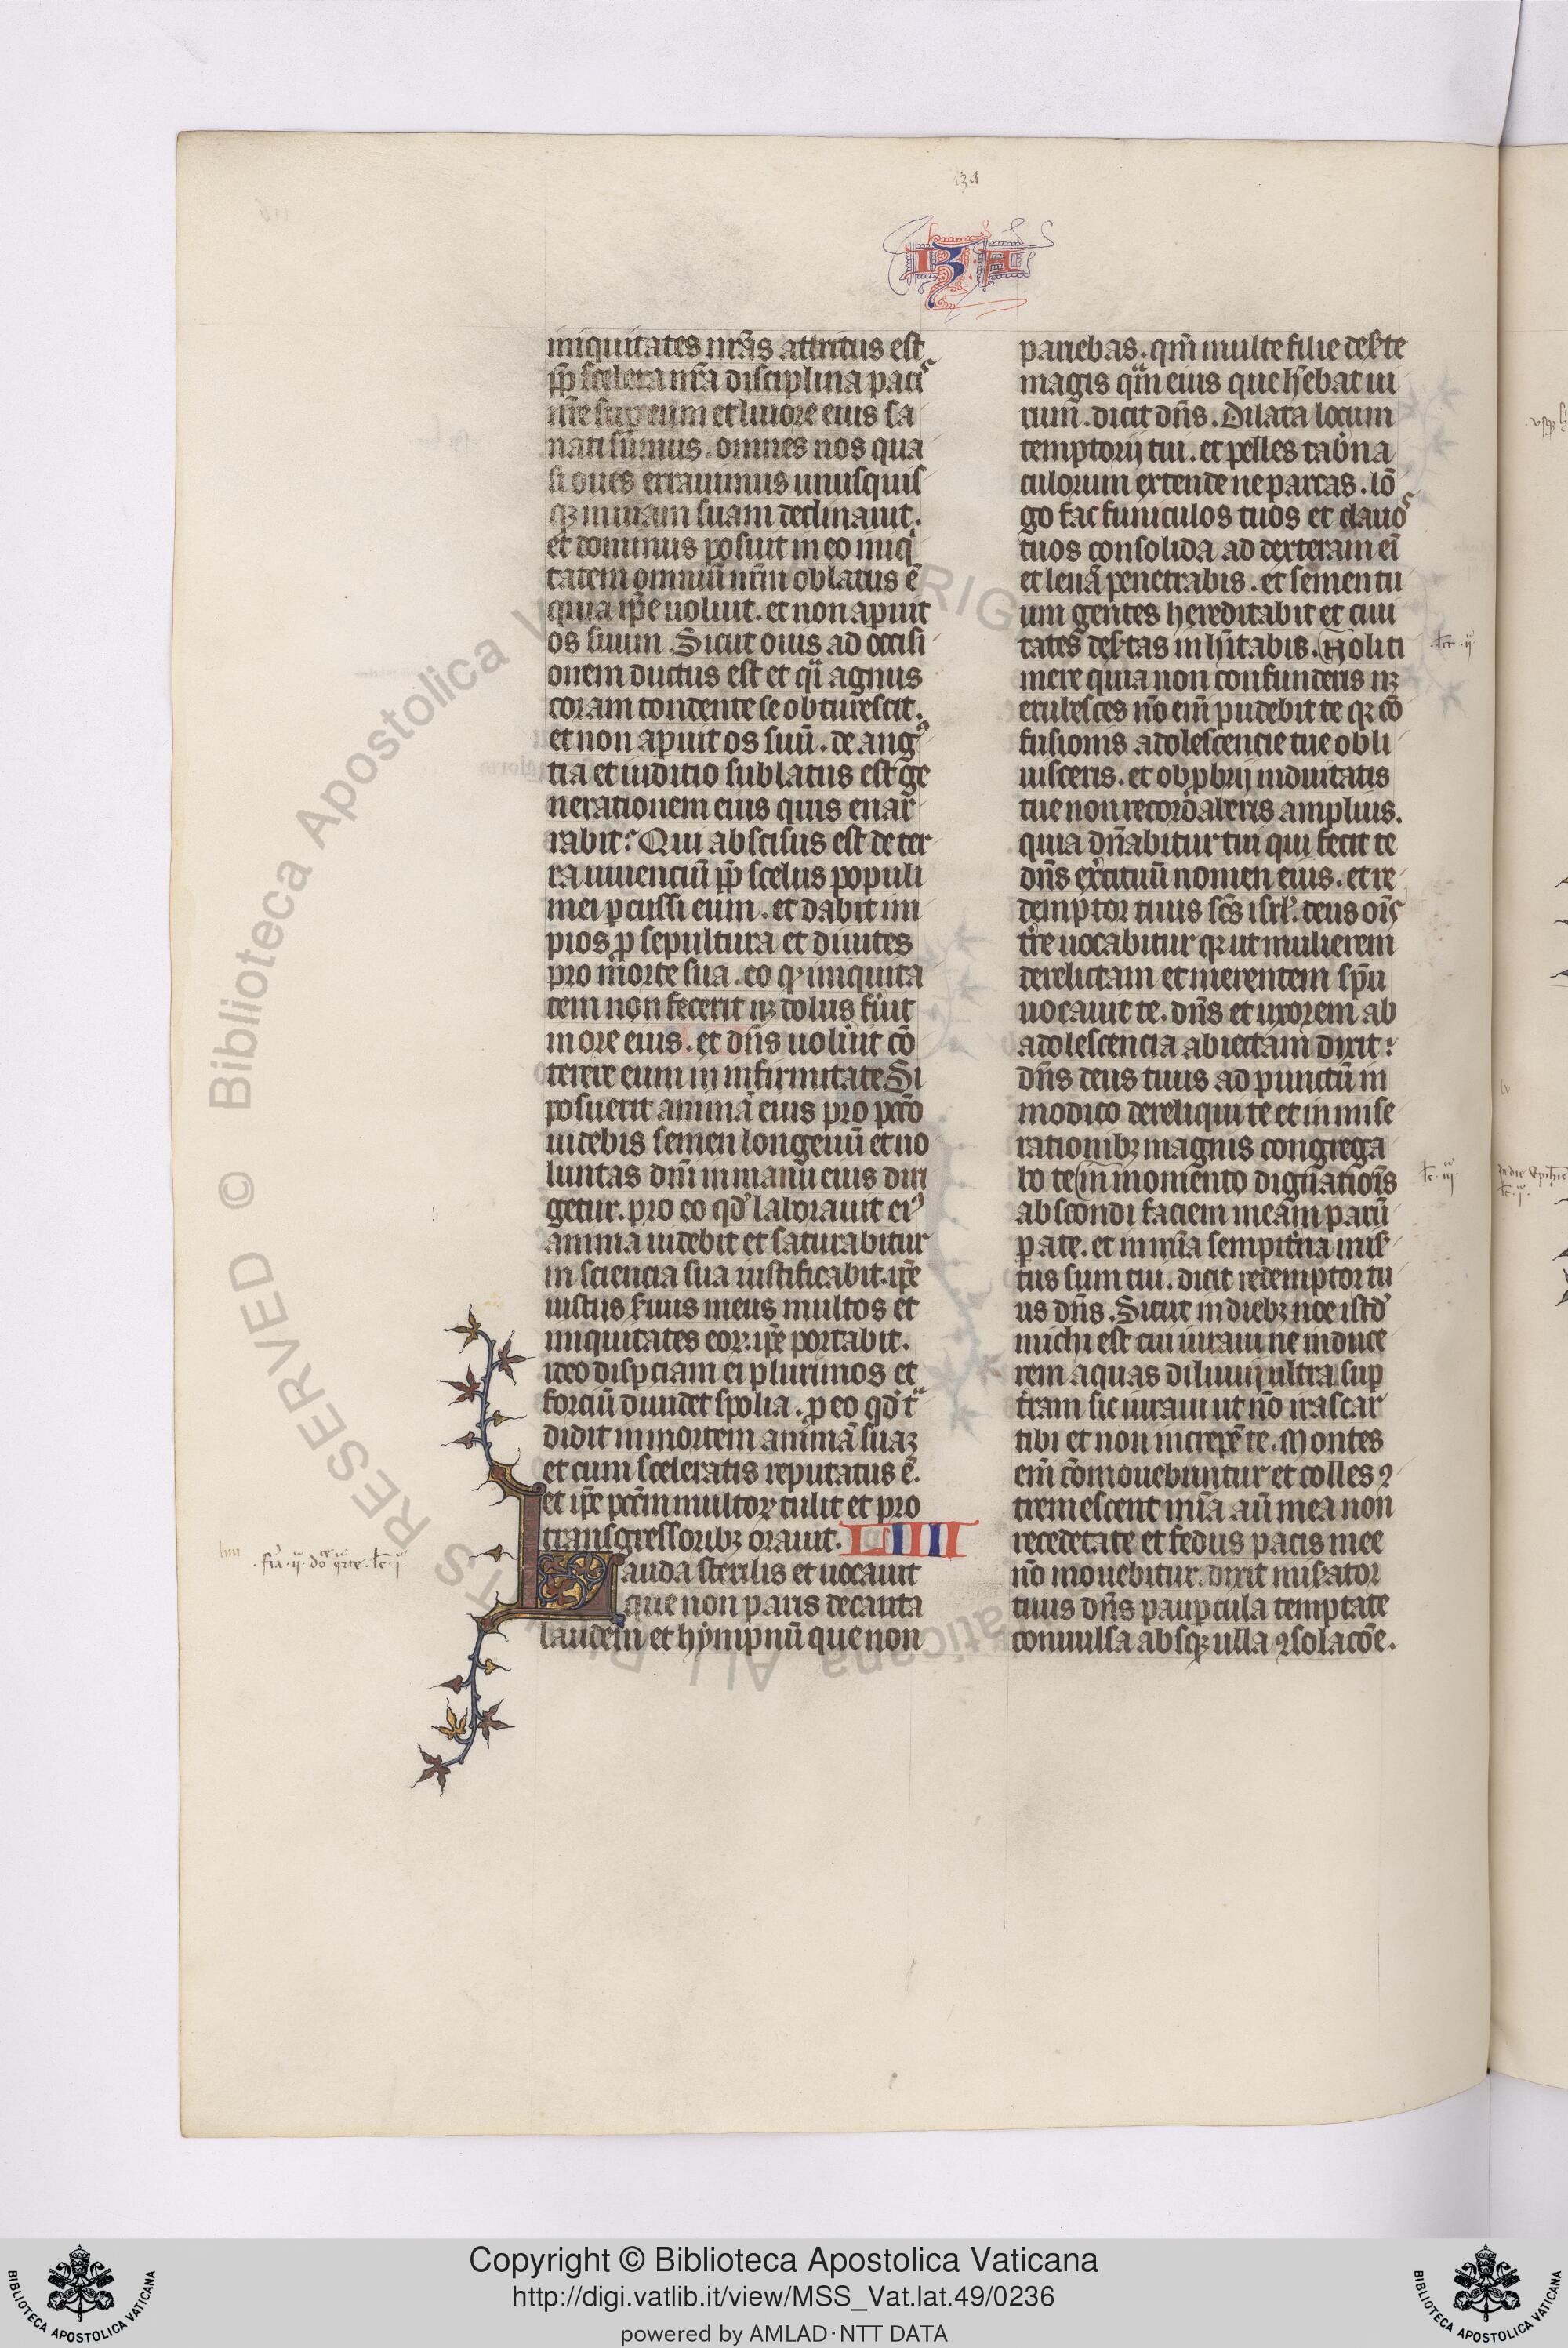 134
IZA
iniquitates nr̃as attritus est
pp̃ scelera nr̃a disciplina pacis
nr̃e sup eum et liuore eius sa
nati sumus. omnes nos qua
si oues errauimus unusquis
qz in uiam suam declinauit.
et dominus posuit in eo iniqi
tatem omniũ nr̃m oblatus ẽ
quia ip̃e uoluit. et non apuit
os suum Sicut ouis ad occisi
onem ductus est et qi agnus
coram tondente se obtiuescit.
et non apuit os suũ. de angꝰ
tia et iuditio sublatus est ge
nerationem eius quis enar
rabit? Qui abscisus est de ter
ra uiuenciũ pp̃ scelus populi
mei ꝑcussi eum. et dabit im
pios ꝓ sepultura et diuites
pro morte sua. eo ꝙ iniquita
tem non fecerit nz dolus fuit
in ore eius. et dñs uoluit cõ
terere eum in infirmitate Si
posuerit animã eius pro pctõ
uidebis semen longeuũ et uo
luntas dñi in manu eius diri
getur. pro eo qd' laborauit eiꝰ
anima uidebit et saturabitur
in sciencia sua iustificabit ip̃e
iustus s'uus meus multos et
iniquitates eoꝝ ip̃e portabit.
ideo dispciam ei plurimos et
forciũ diuidet spolia. ꝓ eo qd' tͣ
didit in mortem animã suaz
et cum sceleratis reputatus ẽ.
et ip̃e pctm multoꝝ tulit et pro
transgressoribz orauit. LIIII
Lauda sterilis et uocauit
que non paris decanta
laudem et hympnũ que non
pariebas. qm̃ multe filie des'te
magis qͣm eius que h'ebat ui
rum. dicit dñs. Dilata locum
temptorij tui. et pelles tab'na
culorum extende ne parcas. lõ
go fac funiculos tuos et clauos
tuos consolida ad dexteram eĩ
et leuã penetrabis. et semen tu
um gentes hereditabit et ciui
tates des'tas inh'itabis. Noli ti
mere quia non confunderis nz
erubesces nõ em̃ pudebit te qz cõ
fusionis adolescencie tue obli
uisceris. et obꝓbrij induitatis
tue non recordaberis amplius.
quia dñabitur tui qui fecit te
dñs ex'cituũ nomen eius. et re
demptor tuus sc̃s isrl'. deus oĩs
tr̃e uocabitur qz ut mulierem
derelictam et merentem sp̃u
uocauit te. dñs et uxorem ab
adolescencia abiectam dixit?
dñs deus tuus ad punctũ in
modico dereliqui te et in mise
rationibz magnis congrega
bo te in momento dignatiõis
abscondi faciem meam parũ
ꝑ a te. et in mĩa sempit'na mis'
tus sum tui. dicit redemptor tu
us dñs. Sicut in diebz noe istd'
michi est cui iuraui ne induce
rem aquas diluuij ultra sup
t'ram sic iuraui ut nõ irascar
tibi et non increpẽ te. Montes
em̃ cõmouebuntur et colles ꝯ
tremescent mĩa aũ mea non
recedet a te et fedus pacis mee
nõ mouebitur. dixit mis'ator
tuus dñs paupcula temptate
conuulsa absqz ulla ꝯsolacõe.
.lcc. ij
lc. iij
liiii
.fia. ij. do qrte. lc. j.
Biblioteca Apostolica Vaticana ALL RIGHTS RESERVED ©
Copyright © Biblioteca Apostolica Vaticana
http://digi.vatlib.it/view/MSS_Vat.lat.49/0236
powered by AMLAD·NTT DATA
BIBLIOTECA APOSTOLICA VATICANA
BIBLIOTECA APOSTOLICA VATICANA